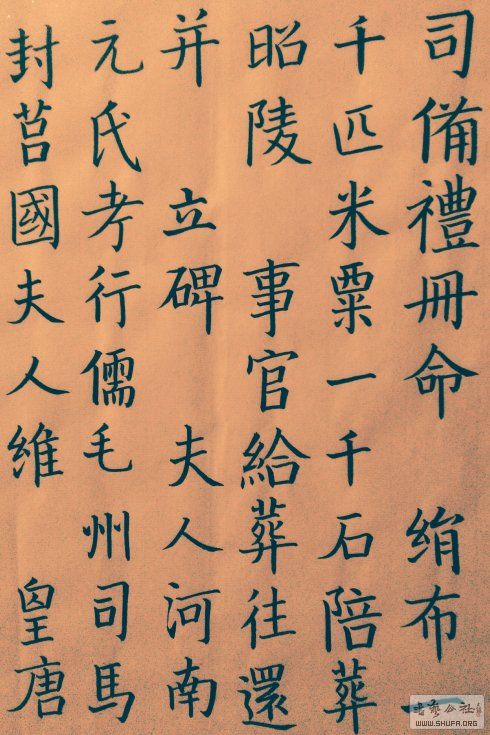 司備禮冊命　絹布一
千匹米粟一千石陪葬
昭陵　事官給葬往還
并　立碑　夫人河南
元氏考行儒毛州司馬
封莒國夫人維　皇唐
WWW.SHUFA.ORG